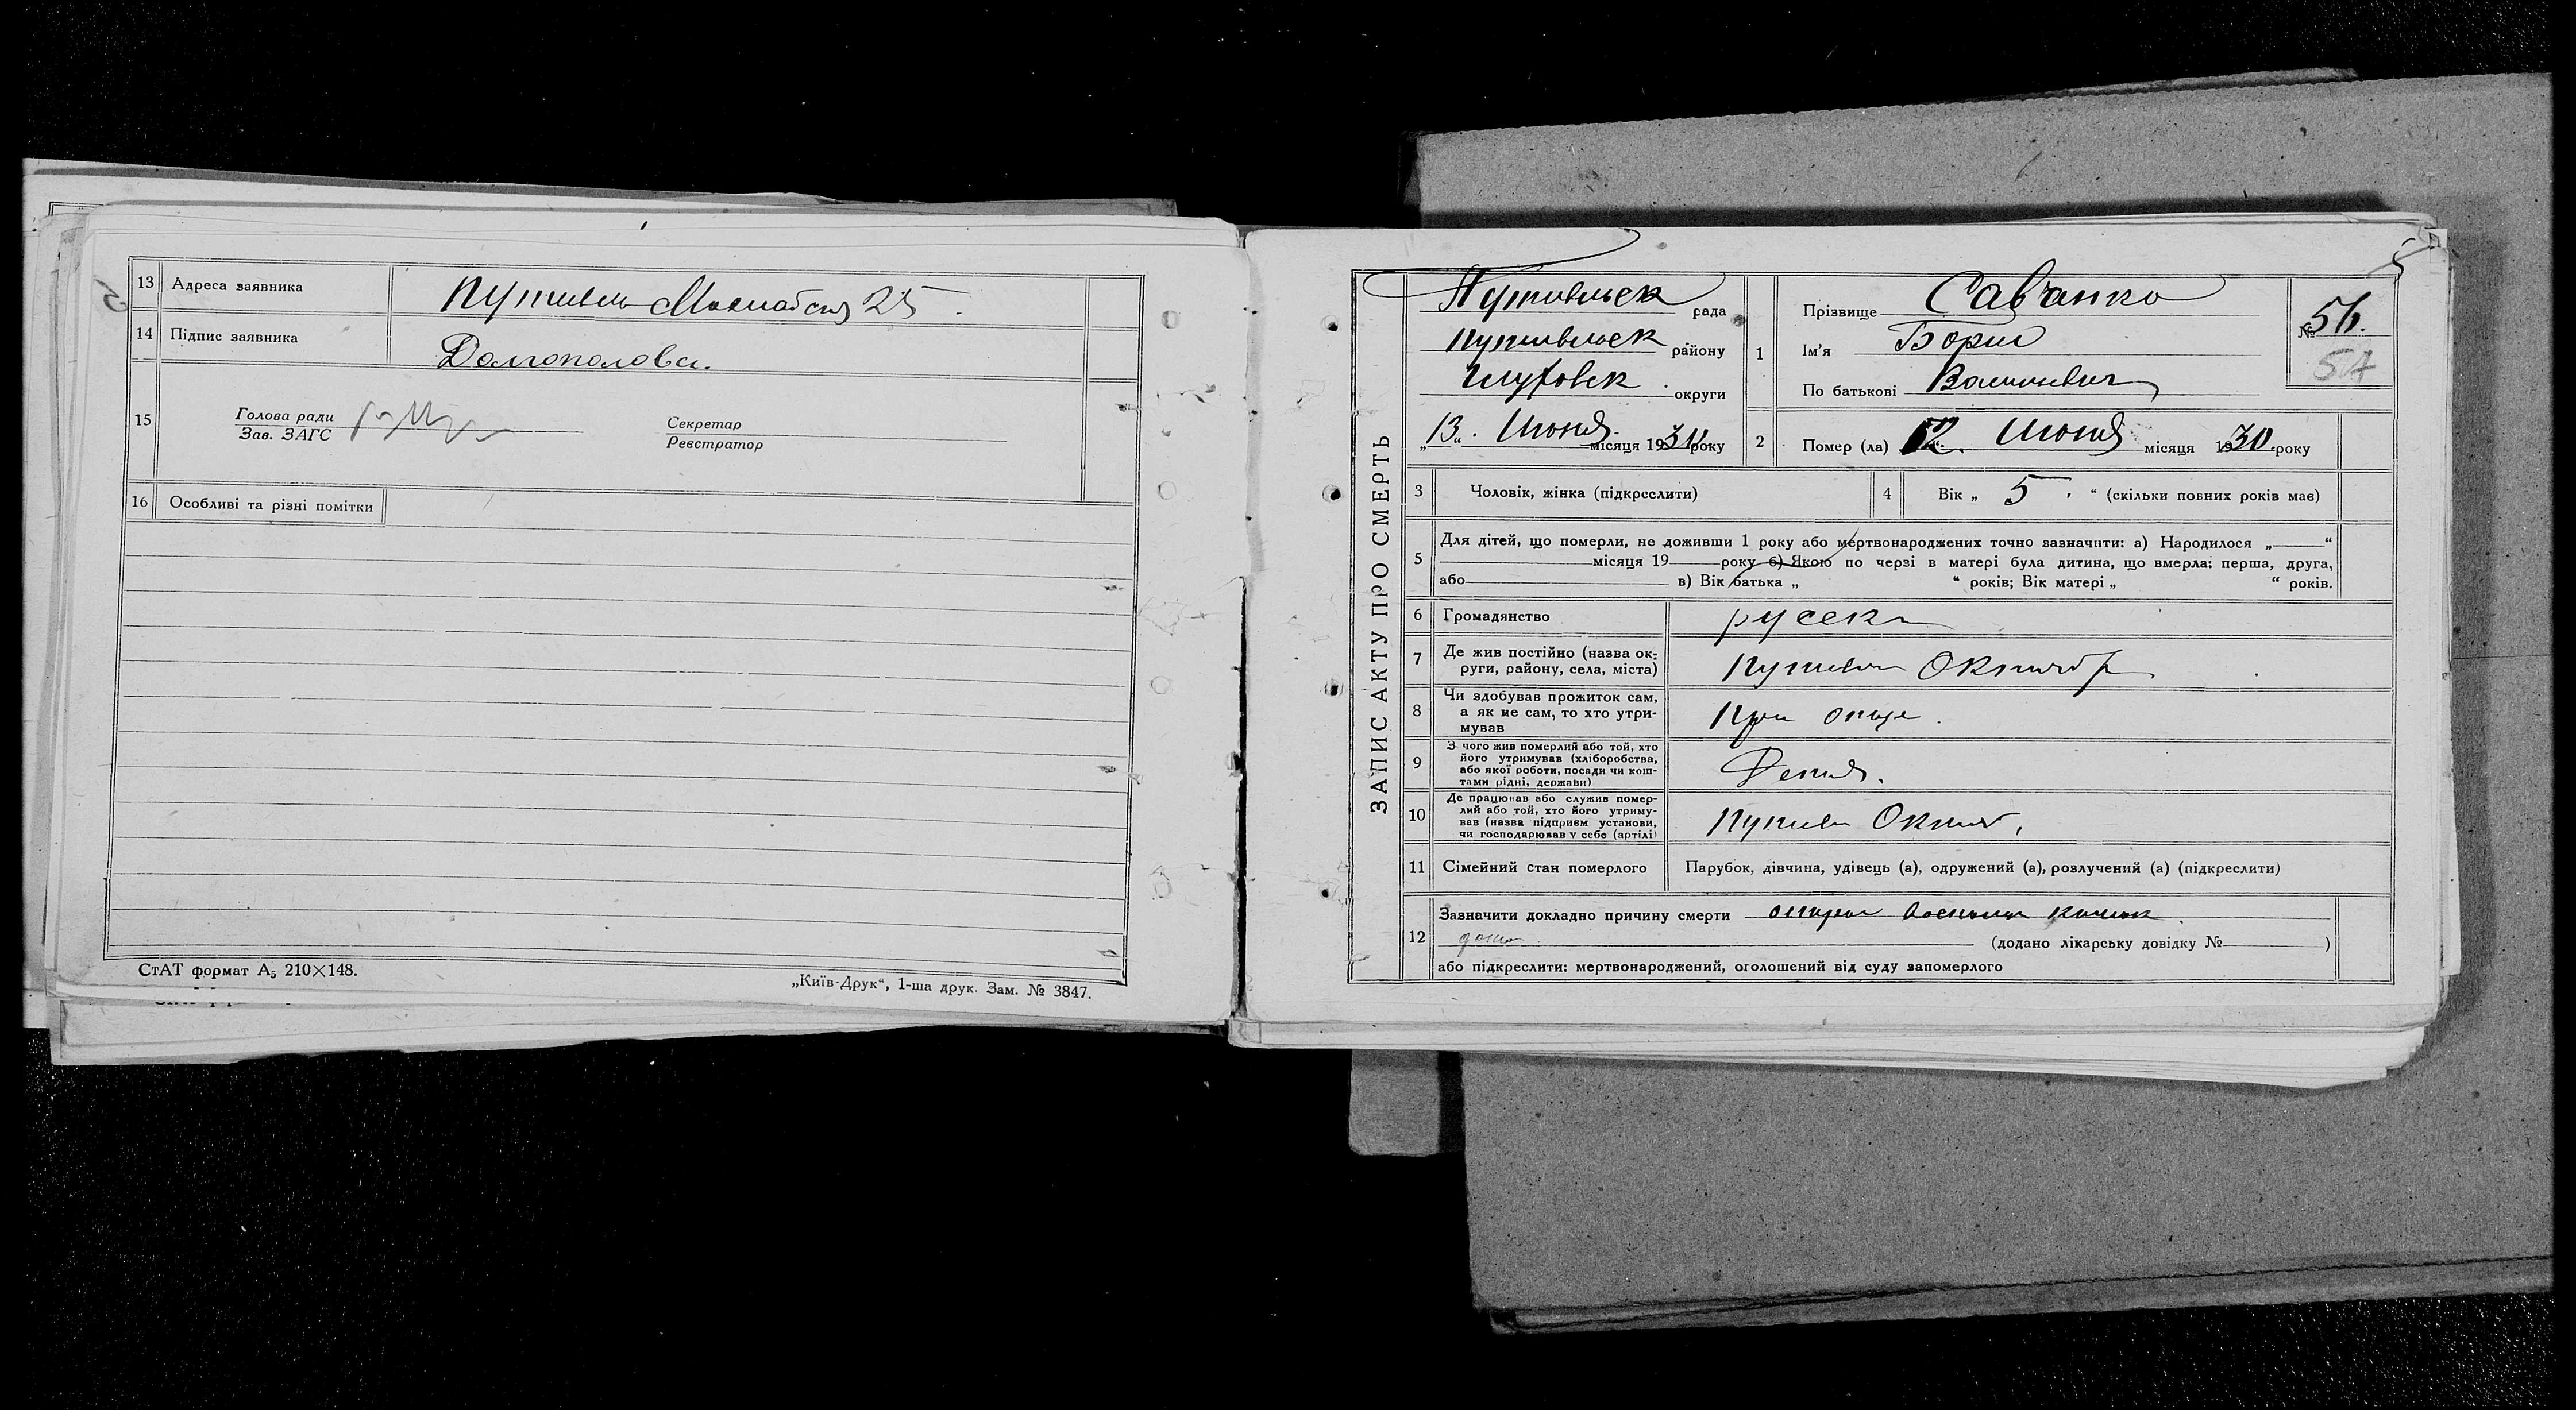 13 Адреса заявника Путивль 25
14 Підпис заявника Долгополова.
15 Голова ради
Зав. ЗАГС
Секретар
Реєстратор
16 Особливі та різні помітки
СтАТ формат А₅ 210×148.
„Київ-Друк“, 1-ша друк. Зам. № 3847.
ЗАПИС АКТУ ПРО СМЕРТЬ
Путивльск рада
Путивльск району
Глуховск округи
„13“ Июня місяця 1930 року
1 Прізвище Савченко
Ім'я Борис
По батькові
№ 56.
57
2 Помер (ла) 12 Июня місяця 1930 року
3 Чоловік, жінка (підкреслити)
4 Вік „ 5 “ (скільки повних років мав)
5 Для дітей, що померли, не доживши 1 року або мертвонароджених точно зазначити: а) Народилося „ “
місяця 19 року б) Якою по черзі в матері була дитина, що вмерла: перша, друга,
або в) Вік батька „ “ років; Вік матері „ “ років.
6 Громадянство русск
7 Де жив постійно (назва ок-
руги, району, села, міста) Путивль Октябр
8 Чи здобував прожиток сам,
а як не сам, то хто утри-
мував При отце.
9 З чого жив померлий або той, хто
його утримував (хліборобства,
або якої роботи, посади чи кош-
тами рідні, держави)
10 Де працював або служив помер-
лий або той, хто його утриму-
вав (назва підприєм установи,
чи господарював у себе (артілі) Путивль Октяб,
11 Сімейний стан померлого Парубок, дівчина, удівець (а), одружений (а), розлучений (а) (підкреслити)
12 Зазначити докладно причину смерти
(додано лікарську довідку № )
або підкреслити: мертвонароджений, оголошений від суду запомерлого